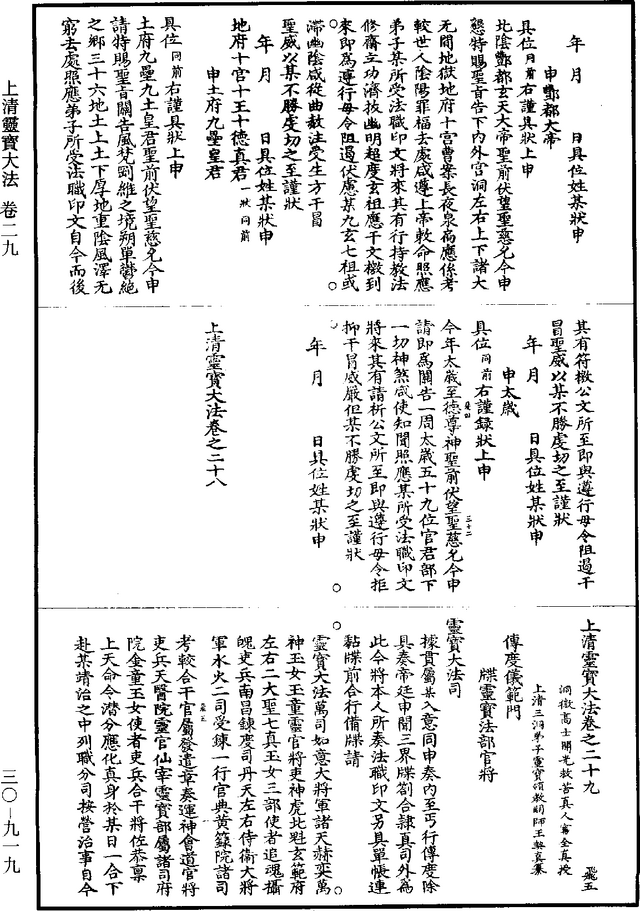 上清靈寶大法 卷二九
三〇—九一九
年　月　　日具位姓某狀申
申酆都大帝
具位同前右謹具狀上申
北陰酆都玄天大帝聖前伏望聖慈允今申
懇特賜聖旨告下內外宮洞左右上下諸大
无間地獄地府十宮曹案長夜泉扃應係考
較世人陰陽罪福去處咸遵上帝敕命照應
弟子某所受法職印文將來其有行持教法
修齋立功濟拔幽明超度玄祖應干文檄到
來即為遵行毋令阻遏伏慮某九玄七祖或
滯幽陰咸從曲赦注受生方干冒
聖威以某不勝虔切之至謹狀
年　月　　日具位姓某狀申
地府十宮十王十德真君一狀同前
申土府九壘皇君
具位同前右謹具狀上申
土府九壘九土皇君聖前伏望聖慈允今申
請特賜聖旨關告風梵剛維之境朔單鬱絕
之鄉三十六地土上土下厚地重陰風澤无
窮去處照應弟子所受法職印文自今而後
其有符檄公文所至即與遵行毋令阻遏干
冒聖威以某不勝虔切之至謹狀
年　月　　日具位姓某狀申
申太歲
具位同前右謹錄狀上申
今年太歲至德尊神聖前伏望聖慈允今申
請即為關告一周太歲五十九位官君部下
一切神煞咸使知聞照應某所受法職印文
將來其有請祈公文所至即與遵行毋令拒
抑干冒威嚴但某不勝虔切之至謹狀
年　月　　日具位姓某狀申
上清靈寶大法卷之二十八
上清靈寶大法卷之二十九
洞微高士開光救苦真人甯全真授
上清三洞弟子靈寶領教嗣師王契真纂
傳度儀範門
牒靈寶法部官將
靈寶大法司
據貫屬某入意同申奏內至丐行傳度除
具奏帝廷申聞三界牒劄合隸真司外為
此今將本人所奏法職印文另具單帳連
黏牒前合行備牒請
靈寶大法萬司如意大將軍諸天赫奕萬
神玉女玉童靈官將吏神虎北魁玄範府
左右二大聖七真玉女三部使者追魂攝
魄吏兵南昌鍊度司丹天左右侍衛大將
軍水火二司受鍊一行官典黃籙院諸司
考較合干官屬發遣章奏運神會道官將
吏兵天醫院靈官仙宰靈寶部屬諸司府
院金童玉女使者吏兵合干將佐恭稟
上天命令潛分應化真身於某日一合下
赴某靖治之中列職分司按營治事自今